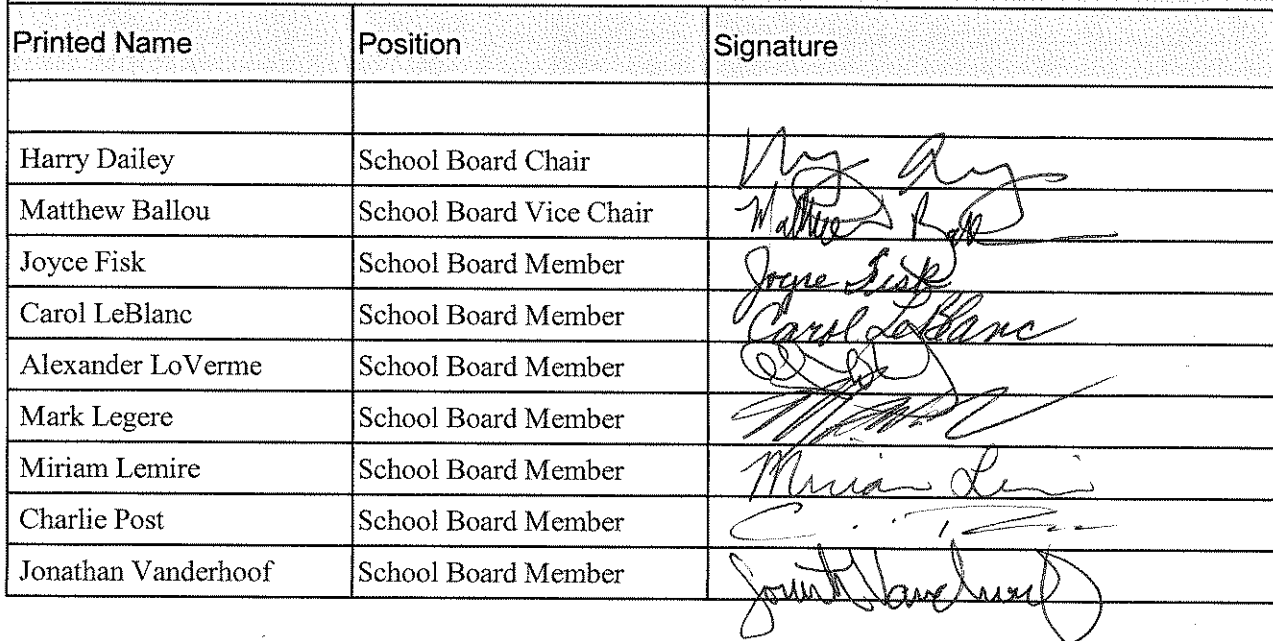 Printed Name Position Signature
Harry Dailey School Board Chair
Matthew Ballou School Board Vice Chair Matthew
Joyce Fisk School Board Member Joyce Fisk
Carol LeBlanc School Board Member Carol LeBlanc
Alexander LoVerme School Board Member
Mark Legere School Board Member
Miriam Lemire School Board Member Miriam
Charlie Post School Board Member
Jonathan Vanderhoof School Board Member